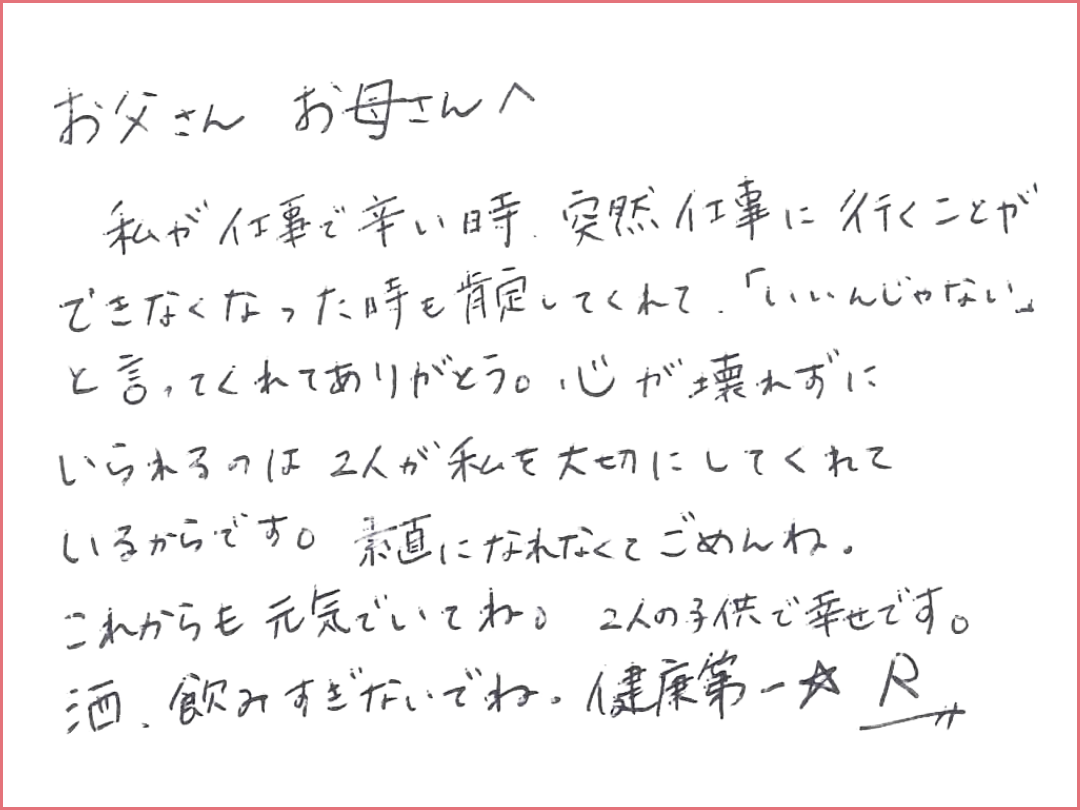 お父さん お母さんへ
私が仕事で辛い時、突然仕事に行くことが
できなくなった時も肯定してくれて、「いいんじゃない」
と言ってくれてありがとう。心が壊れずに
いられるのは2人が私を大切にしてくれて
いるからです。素直になれなくてごめんね。
これからも元気でいてね。2人の子供で幸せです。
酒、飲みすぎないでね。健康第一☆ R